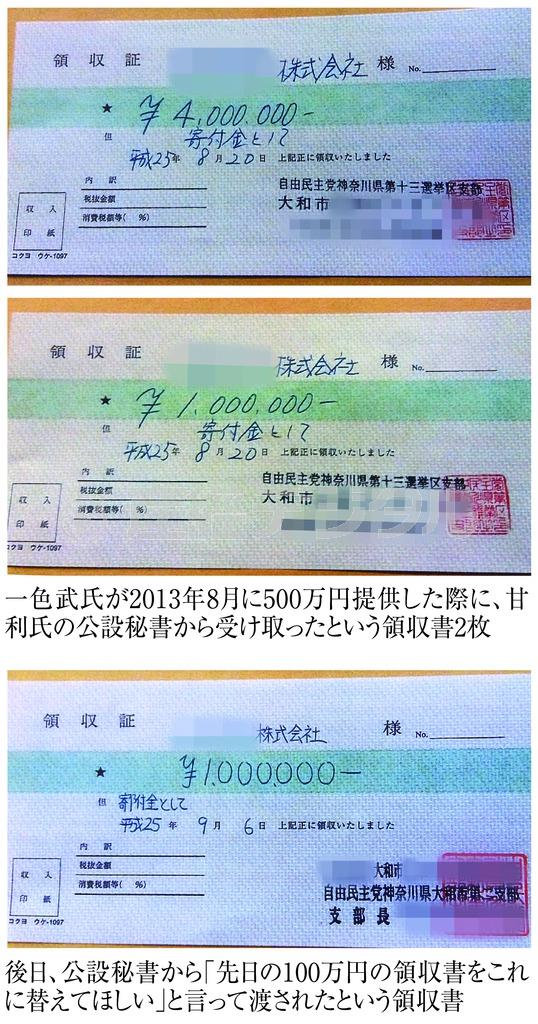 領収証
株式会社 様 No.
★ ¥4,000,000-
但 寄付金として
平成25年 8月20日 上記正に領収いたしました
内訳
税抜金額
消費税額等( %)
収入
印紙
コクヨ ウケ-1097
自由民主党神奈川県第十三選挙区支部
大和市
領収証
株式会社 様 No.
★ ¥1,000,000-
但 寄付金として
平成25年 8月20日 上記正に領収いたしました
内訳
税抜金額
消費税額等( %)
収入
印紙
コクヨ ウケ-1097
自由民主党神奈川県第十三選挙区支部
大和市
一色武氏が2013年8月に500万円提供した際に、甘
利氏の公設秘書から受け取ったという領収書2枚
領収証
株式会社 様 No.
★ ¥1,000,000-
但 寄付金として
平成25年 9月6日 上記正に領収いたしました
内訳
税抜金額
消費税額等( %)
収入
印紙
コクヨ ウケ-1097
大和市
自由民主党神奈川県大和市第二支部
支部長
後日、公設秘書から「先日の100万円の領収書をこれ
に替えてほしい」と言って渡されたという領収書